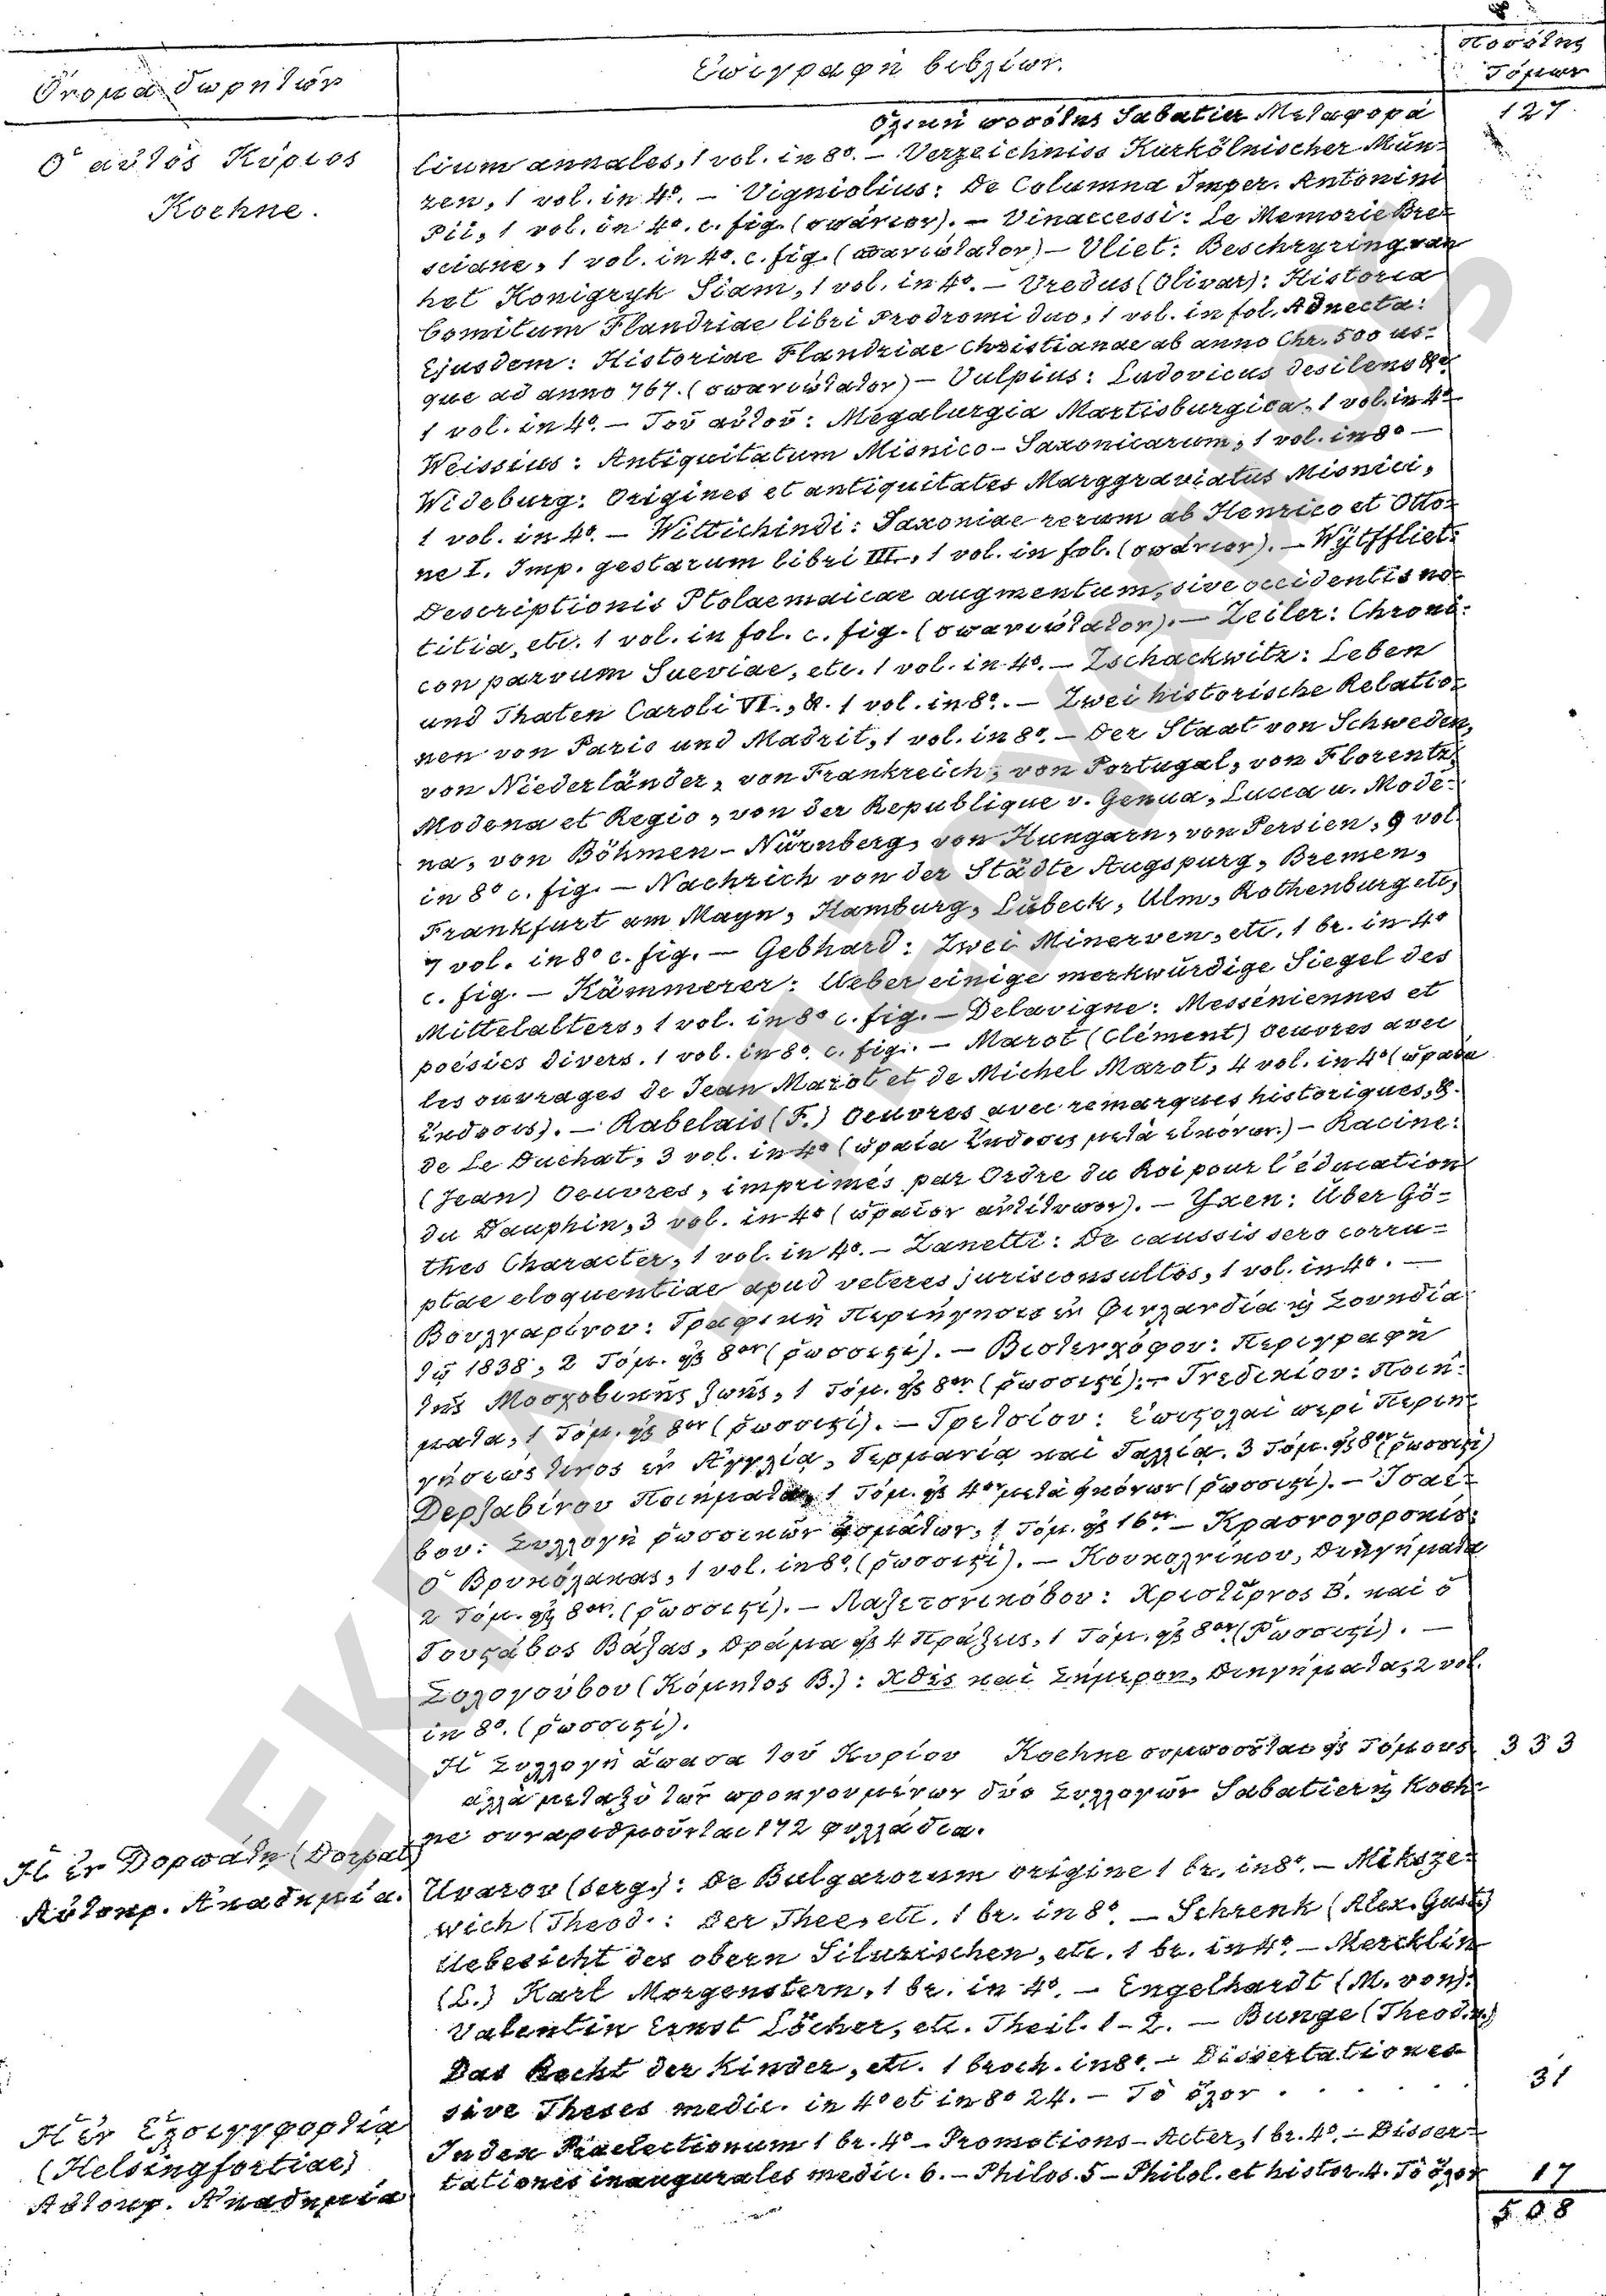 Ὄνομα δωρητῶν
Ἐπιγραφὴ βιβλίων.
Ποσότης
Τόμων
Ὁλικὴ ποσότης Sabatier Μεταφορὰ 127
Ὁ αὐτὸς Κύριος
Koehne.
lium annales, 1 vol. in 8º. – Verzeichniss Kurkölnischer Mün-
zen, 1 vol. in 4º. – Vigniolius: De Columna Imper. Antonini
Pii, 1 vol. in 4º. c. fig. (σπάνιον). – Vinaccessi: Le Memorie Bre-
sciane, 1 vol. in 4º. c. fig. (σπανιώτατον) – Vliet: Beschryving van
het Konigryk Siam, 1 vol. in 4º. – Vredus (Olivar): Historia
Comitum Flandriae libri Prodromi duo, 1 vol. in fol. Adnecta:
Ejusdem: Historiae Flandriae Christianae ab anno Chr. 500 us-
que ad anno 767. (σπανιώτατον) – Vulpius: Ludovicus desilens &c
1 vol. in 4º. – Τοῦ αὐτοῦ: Megalurgia Martisburgica, 1 vol. in 4º –
Weissius: Antiquitatum Misnico-Saxonicarum, 1 vol. in 8º –
Wideburg: Origines et antiquitates Marggraviatus Misnici,
1 vol. in 4º. – Wittichindi: Saxoniae rerum ab Henrico et Otto-
ne I. Imp. gestarum libri III., 1 vol. in fol. (σπάνιον). – Wÿtffliet:
Descriptionis Ptolaemaicae augmentum, sive occidentis no-
titia, etc. 1 vol. in fol. c. fig. (σπανιώτατον). – Zeiler: Chroni-
con parvum Sueviae, etc. 1 vol. in 4º. – Zschackwitz: Leben
und Thaten Caroli VI., &. 1 vol. in 8º. – Zwei historische Relatio-
nen von Paris und Madrit, 1 vol. in 8º. – Der Staat von Schweden,
von Niederländer, von Frankreich, von Portugal, von Florentz,
Modena et Regio, von der Republique v. Genua, Lucca u. Mode-
na, von Böhmen – Nürnberg, von Hungarn, von Persien, 9 vol.
in 8º c. fig. – Nachrich von der Städte Augspurg, Bremen,
Frankfurt am Mayn, Hamburg, Lübeck, Ulm, Rothenburg etc,
7 vol. in 8º c. fig. – Gebhard: Zwei Minerven, etc. 1 br. in 4º
c. fig. – Kämmerer: Ueber einige merkwürdige Siegel des
Mittelalters, 1 vol. in 8º c. fig. – Delavigne: Messéniennes et
poésies divers. 1 vol. in 8º. c. fig. – Marot (Clément) Oeuvres avec
les ouvrages de Jean Marot et de Michel Marot, 4 vol. in 4º (ὡραία
ἔκδοσις). – Rabelais (F.) Oeuvres avec remarques historiques, &.
de Le Duchat, 3 vol. in 4º (ὡραία ἔκδοσις μετὰ εἰκόνων.) – Racine:
(Jean) Oeuvres, imprimés par Ordre du Roi pour l'éducation
du Dauphin, 3 vol. in 4º (ὡραῖον ἀντίτυπον). – Yxen: Über Gö-
thes Character, 1 vol. in 4º. – Zanetti: De caussis sero corru-
ptae eloquentiae apud veteres jurisconsultos, 1 vol. in 4º. –
Βουλγαρίνου: Γραφικὴ Περιήγησις ἐν Φινλανδίᾳ καὶ Σουηδίᾳ
τῷ 1838, 2 Τόμ. εἰς 8ον (ῥωσσιστί). – Βιστενχόφου: Περιγραφὴ
τῆς Μοσχοβικῆς ζωῆς, 1 Τόμ. εἰς 8ον (ῥωσσιστί). – Γνεδικίου: Ποιή-
ματα, 1 Τόμ. εἰς 8ον (ῥωσσιστί). – Γρετσίου: Ἐπιστολαὶ περὶ Περιη-
γήσεώς τινος ἐν Ἀγγλίᾳ, Γερμανίᾳ καὶ Γαλλίᾳ. 3 Τόμ. εἰς 8ον (ῥωσσιστί)
Δερζαβίνου Ποιήματα, 1 Τόμ. εἰς 4ον μετὰ εἰκόνων (ῥωσσιστί). – Ἰσαΐ-
βου: Συλλογὴ ῥωσσικῶν ᾀσμάτων, 1 Τόμ. εἰς 16ον – Κρασνογορσκίς:
ὁ Βρυκόλακας, 1 vol. in 8º. (ῥωσσιστί). – Κουκολνίκου, Διηγήματα
2 Τόμ. εἰς 8ον. (ῥωσσιστί). – Λαζετσνικόβου: Χριστῖρνος Β΄. καὶ ὁ
Γουστάβος Βάζας, Δράμα εἰς 4 Πράξεις, 1 Τόμ. εἰς 8ον. (Ῥωσσιστί). –
Σολογούβου (Κόμητος Β.): Χθὲς καὶ Σήμερον, Διηγήματα, 2 vol.
in 8º. (ῥωσσιστί).
Ἡ Συλλογὴ ἅπασα τοῦ Κυρίου Koehne συμποσοῦται εἰς Τόμους 333
ἀλλὰ μεταξὺ τῶν προηγουμένων δύο Συλλογῶν Sabatier καὶ Koeh-
ne συναριθμοῦνται 172 φυλλάδια.
Ἡ ἐν Δορπάτῃ (Dorpat)
Αὐτοκρ. Ἀκαδημία.
Uvarov (Serg.): De Bulgarorum origine 1 br. in 8º. – Miksze-
wich (Theod.: Der Thee, etc. 1 br. in 8º. – Schrenk (Alex. Gust.)
Uebesicht des obern Silurischen, etc. 1 br. in 4º. – Mercklin
(L.) Karl Morgenstern, 1 br. in 4º. – Engelhardt (M. von):
Valentin Ernst Löcher, etc. Theil. 1-2. – Bunge (Theod. v.)
Das Recht der Kinder, etc. 1 broch. in 8º. – Dissertationes
sive Theses medic. in 4º et in 8º 24. – Τὸ ὅλον . . . . . . 31
Ἡ ἐν Ἑλσιγγφορτίᾳ
(Helsingfortiae)
Αὐτοκρ. Ἀκαδημία
Index Praelectionum 1 br. 4º – Promotions-Acter, 1 br. 4º. – Disser-
tationes inaugurales medic. 6. – Philos. 5 – Philol. et histor. 4. Τὸ ὅλον 17
508
ΕΚΠΑ - ΙΣΤΟΡΙΚΟ